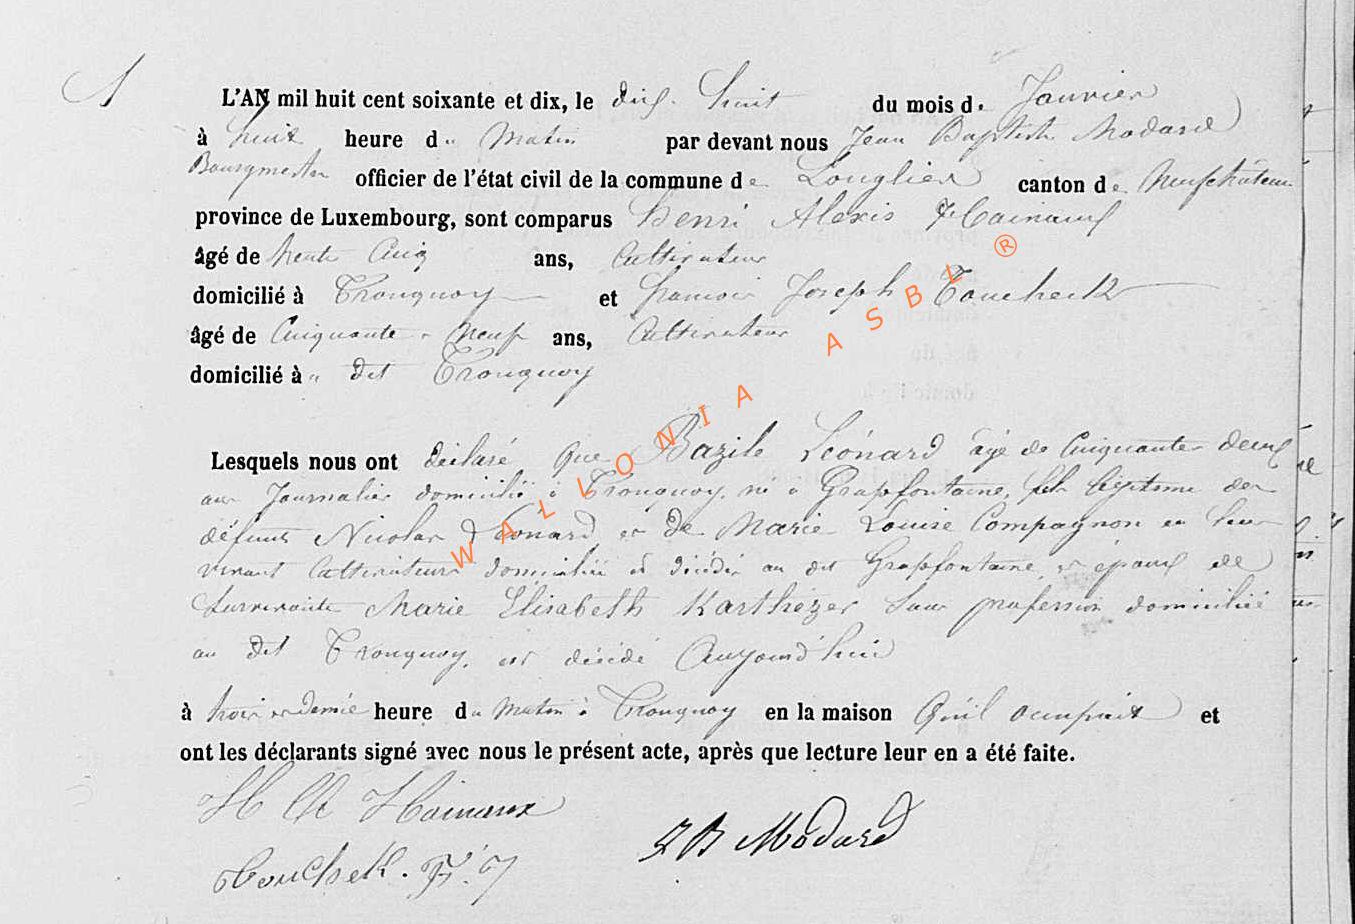 1
L'AN mil huit cent soixante et dix, le dix-huit du mois de Janvier
à huit heure du Matin par devant nous Jean Baptiste Modard
Bourgmestre officier de l'état civil de la commune de Longlier canton de Neufchâteau
province de Luxembourg, sont comparus Henri Alexis Hainaux
âgé de trente Cinq ans, Cultivateur
domicilié à Tronquoy et francois Joseph Toucheck
âgé de Cinquante-neuf ans, Cultivateur
domicilié à dit Tronquoy
Lesquels nous ont déclaré que Bazile Léonard âgé de Cinquante deux
ans Journalier domicilié à Tronquoy, né à Grapfontaine, fils légitime des
défunts Nicolas Léonard et de Marie Louise Compagnon en leur
vivant Cultivateurs domiciliés et décédés au dit Grapfontaine, et époux de
Survivante Marie Elisabeth Karthézer Sans profession domiciliée
au dit Tronquoy, est décédé Aujourd'hui
à trois et demie heure du Matin à Tronquoy en la maison Qu'il occupait et
ont les déclarants signé avec nous le présent acte, après que lecture leur en a été faite.
H A Hainaux
JB Modard
Toucheck. F. J
WALLONIA ASBL ®